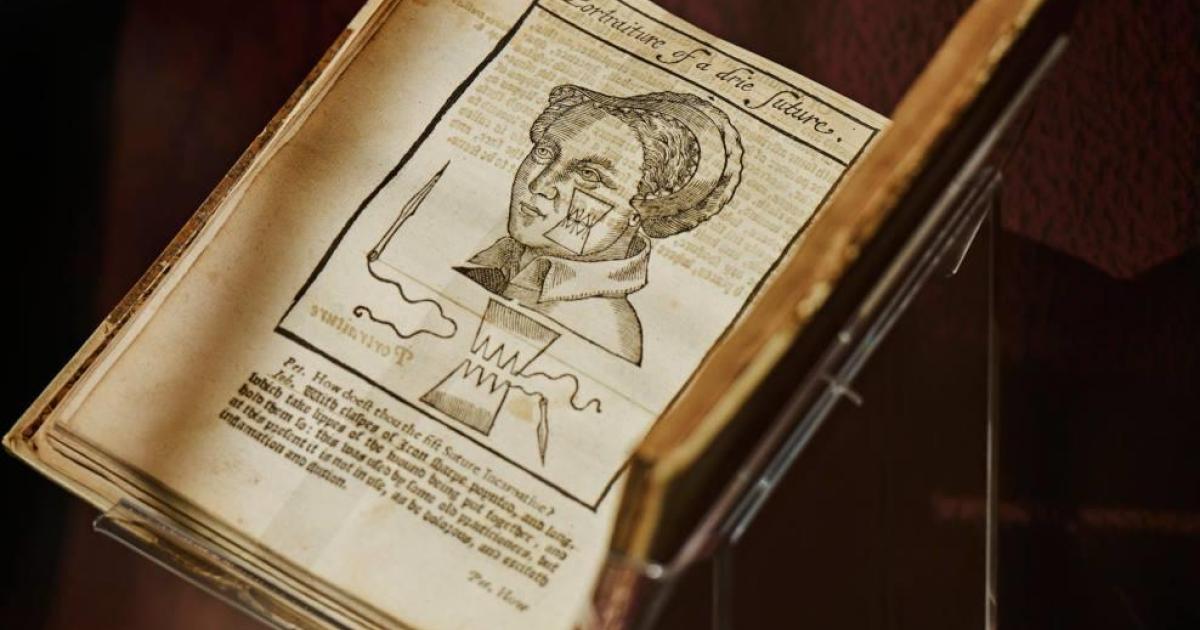 Portraiture of a drie Suture.
Pet. How doeſt thou the fift Suture Incarnative?
Joh. With claſpes of Iron ſharpe poynted, and long,
which take lippes of the wound being put together, and
hold them ſo: this was uſed by ſome old practitioners, but
at this preſent it is not in uſe, as be dolorous, and exciteth
inflamation and fluxion.
Pet. How